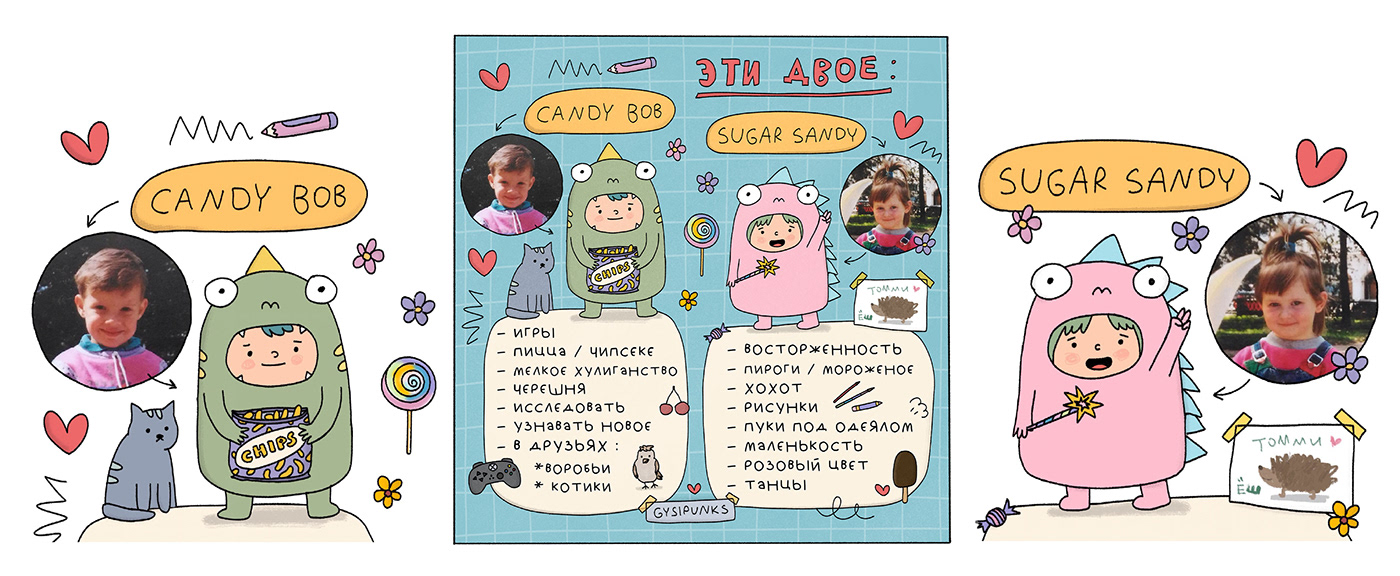 CANDY BOB
CHIPS
ЭТИ ДВОЕ:
CANDY BOB
SUGAR SANDY
CHIPS
ТОММИ
ЁШ
- ИГРЫ
- ПИЦЦА / ЧИПСЕКЕ
- МЕЛКОЕ ХУЛИГАНСТВО
- ЧЕРЕШНЯ
- ИССЛЕДОВАТЬ
- УЗНАВАТЬ НОВОЕ
- В ДРУЗЬЯХ :
*ВОРОБЬИ
* КОТИКИ
- ВОСТОРЖЕННОСТЬ
- ПИРОГИ / МОРОЖЕНОЕ
- ХОХОТ
- РИСУНКИ
- ПУКИ ПОД ОДЕЯЛОМ
- МАЛЕНЬКОСТЬ
- РОЗОВЫЙ ЦВЕТ
- ТАНЦЫ
GYSIPUNKS
SUGAR SANDY
ТОММИ
ЁШ